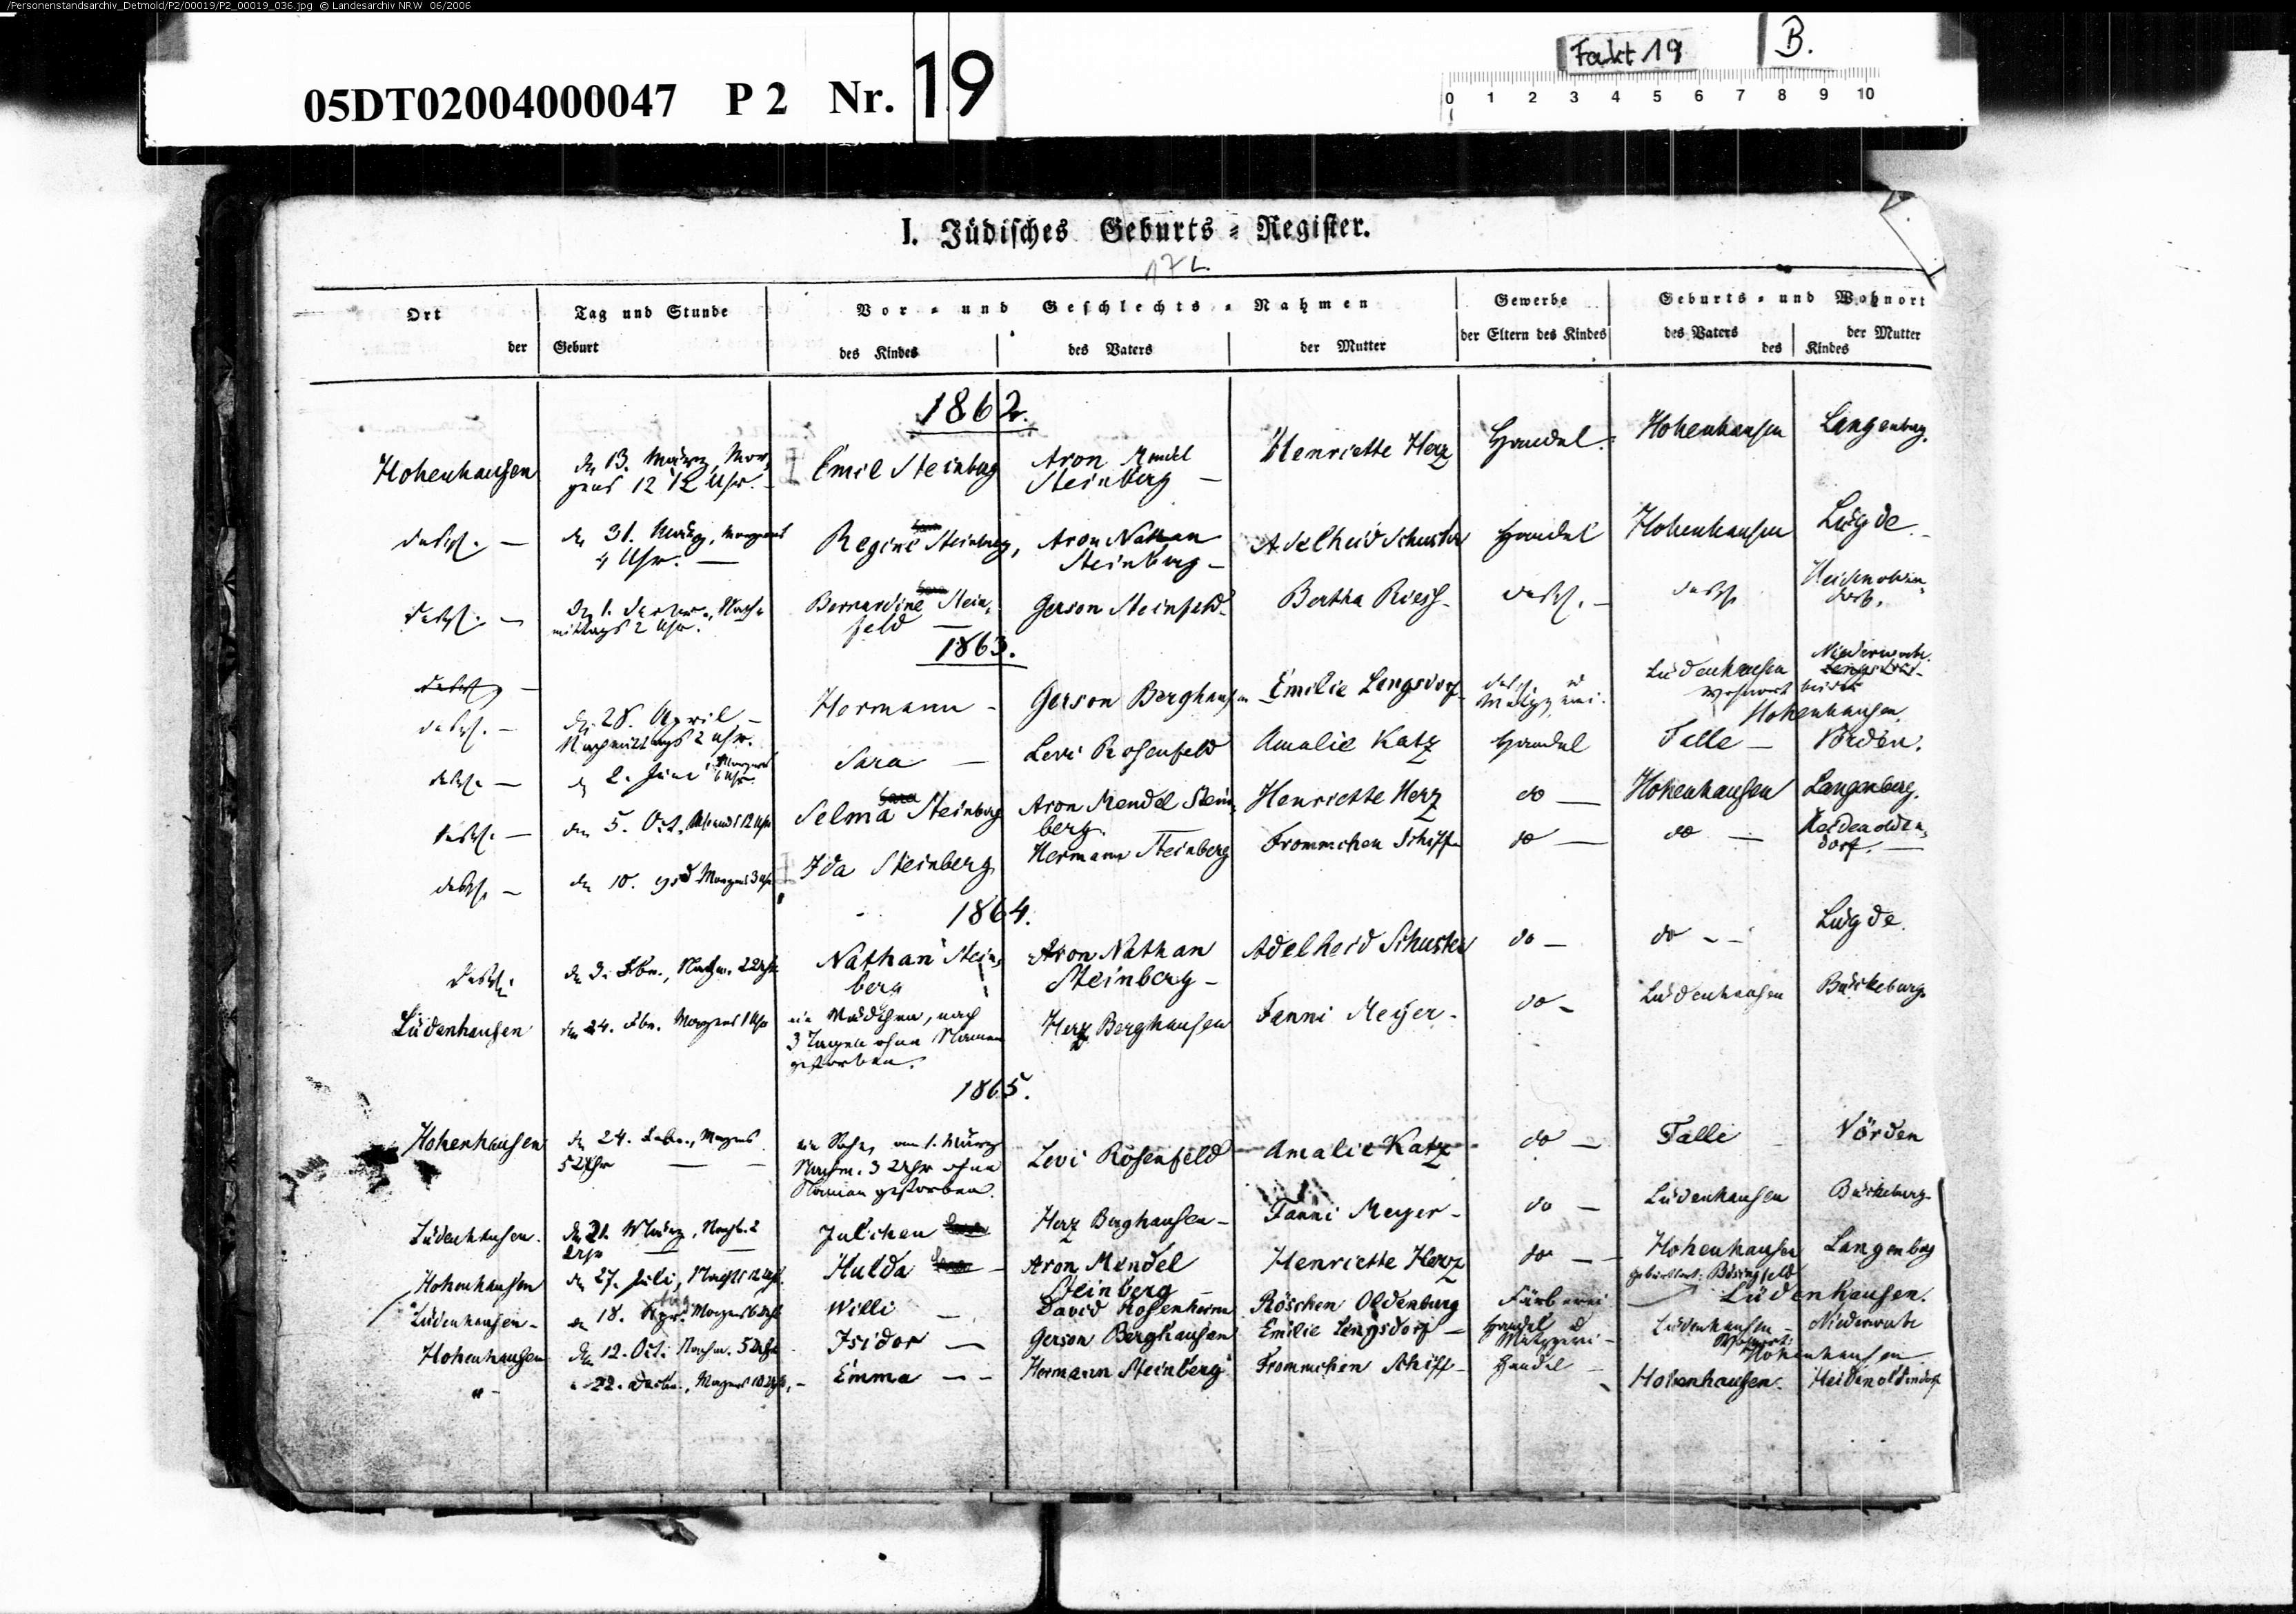 /Personenstandsarchiv_Detmold/P2/00019/P2_00019_036.jpg © Landesarchiv NRW 06/2006
05DT02004000047 P 2 Nr. 19
Fakt 19 B.
0 1 2 3 4 5 6 7 8 9 10
I. Jüdisches Geburts-Register.
Ort der Geburt
Tag und Stunde
Vor- und Geschlechts-Nahmen
des Kindes des Vaters der Mutter
Gewerbe der Eltern des Kindes
Geburts- und Wohnort
des Vaters der Mutter
des Kindes
1862.
Hohenhausen den 13. März, Mor-
gens 12 1/2 Uhr. Emil Steinberg Aron Mendel
Steinberg — Henriette Herz Handel. Hohenhausen Langenberg.
dases. — den 31. März, morgens
4 Uhr. — Regine Steinberg, Aron Nathan
Steinberg — Adelheid Schuster Handel Hohenhausen Lügde.
dases. — Nach-
mittags 2 Uhr. Bernardine Stein-
feld — Gerson Steinfeld Bertha dases. — dases.
1863.
dases. — den 28. April —
Nachmittags 2 Uhr. Hermann — Gerson Berghausen Emilie Lengsdorf Metzgerei. Lüdenhausen
Wohnort beider
Hohenhausen.
dases. — 2. Juni Morgens Sara — Levi Rosenfeld Amalie Katz Handel Talle — Vörden.
dases. — den 5. Oct. Abends 12 Uhr Selma Steinberg Aron Mendel Stein-
berg. Henriette Herz do — Hohenhausen Langenberg.
dases. — den 10. Morgens 3 Uhr Ida Steinberg Hermann Steinberg Frommchen Schiff do — do — Heidenolden-
dorf. —
1864.
dases. den 3. Febr., Nachm. 2 Uhr Nathan Stein-
berg Aron Nathan
Steinberg — Adelheid Schuster do — do — Lügde.
Lüdenhausen den 24. Febr. Morgens 1 Uhr ein Mädchen, nach
3 Tagen ohne Namen
gestorben. Herz Berghausen Fanni Meyer. do — Lüdenhausen Bückeburg.
1865.
Hohenhausen den 24. Febr., Morgens
5 Uhr — ein Sohn, am 1. März
Nachm. 3 Uhr ohne
Namen gestorben. Levi Rosenfeld Amalie Katz do — Talle Vörden
Lüdenhausen. den 21. März, Nachts 2
Uhr — Julchen Herz Berghausen — Fanni Meyer — do — Lüdenhausen Bückeburg.
Hohenhausen den 27. Juli, Nachts 12 Uhr. Hulda Aron Mendel
Steinberg Henriette Herz do — Hohenhausen Langenberg
Lüdenhausen — 18. Morgens 6 Uhr Willi — David Rosenheim Röschen Oldenburg Färberei Geburtsort: Bösingfeld
Lüdenhausen.
Hohenhausen den 12. Oct. Nachm. 5 Uhr Isidor — Gerson Berghausen Emilie Lengsdorf — Handel
Metzgerei — Lüdenhausen —
Wohnort:
Hohenhausen
" — 22. Morgens 10 Uhr, — Emma — Hermann Steinberg Frommchen Schiff — Handel Hohenhausen. Heidenoldendorf